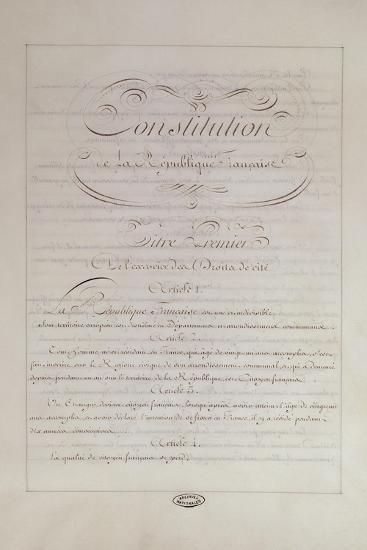 Constitution
de La République Française
Titre Premier
De l'exercice des Droits de cité
Article 1.
La République Française est une et indivisible
Son territoire européen est distribué en Départements et arrondissements communaux.
Article 2.
Tout homme né et résidant en France, qui, âgé de vingt-un ans accomplis, s'est
fait inscrire sur le Registre civique de son arrondissement communal, et qui a demeuré
depuis pendant un an sur le territoire de la République, est Citoyen français.
Article 3.
Un Etranger devient citoyen français, lorsqu'après avoir atteint l'âge de vingt-un
ans accomplis, et avoir déclaré l'intention de se fixer en France, il y a résidé pendant
dix années consécutives.
Article 4.
La qualité de citoyen français se perd:
ARCHIVES
NATIONALES